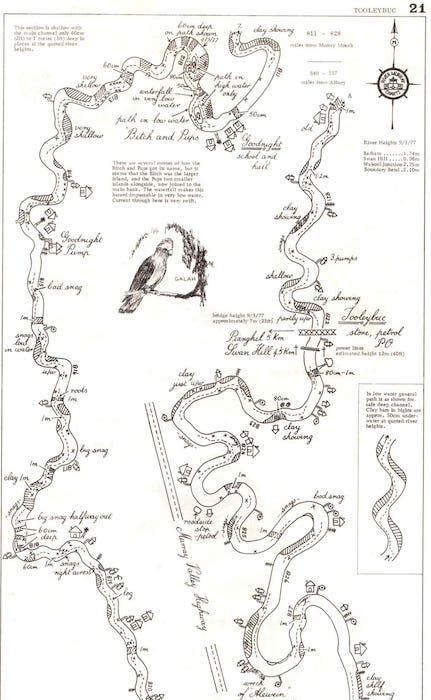 TOOLEYBUC 21
This section is shallow with
the main channel only 60cm
(2ft) to 1 metre (3ft) deep in
places at the quoted river
heights.
60cm deep
on path shown
9/3/77
clay showing
811 - 828
miles from Murray Mouth
540 - 557
miles from Albury
60cm
very
shallow
waterfall
in very low
water
path in
high water
only
50cm
path in low water
Bitch and Pups
Goodnight
school and
hall
very
shallow
old
A
1m
River Heights 9/3/77
Barham
Swan Hill ....0.96m
Wakool Junction 2.75m
Boundary Bend .2.10m
There are several stories of how the
Bitch and Pups got its name, but it
seems that the Bitch was the larger
island, and the Pups two smaller
islands alongside, now joined to the
main bank. The waterfall makes this
hazard impassable in very low water.
Current through here is very swift.
clay
showing
Goodnight
Pump
3 pumps
GALAH
bad snag
shallow
clay showing
partly up
bridge height 9/3/77
approximately 7m (23ft)
Tooleybuc
store, petrol
PO
Pianghil 5 Km
Swan Hill 45 Km
power lines
estimated height 12m (40ft)
snags
but
in water
up
80cm-1m
roots
1m
clay
just up
80cm
clay
showing
In low water general
path is as shown for
safe deep channel.
Clay bars in bights are
approx. 50cm under-
water at quoted river
heights.
1m
big snag
1m
clay
1m
1m
bad snag
snags
big snag halfway out
60cm
deep
818
roadside
stop
petrol
60cm
1m snags
right across
log
Murray Valley Highway
817
1m
1m
wreck
of Alewein
clay
shelf
showing